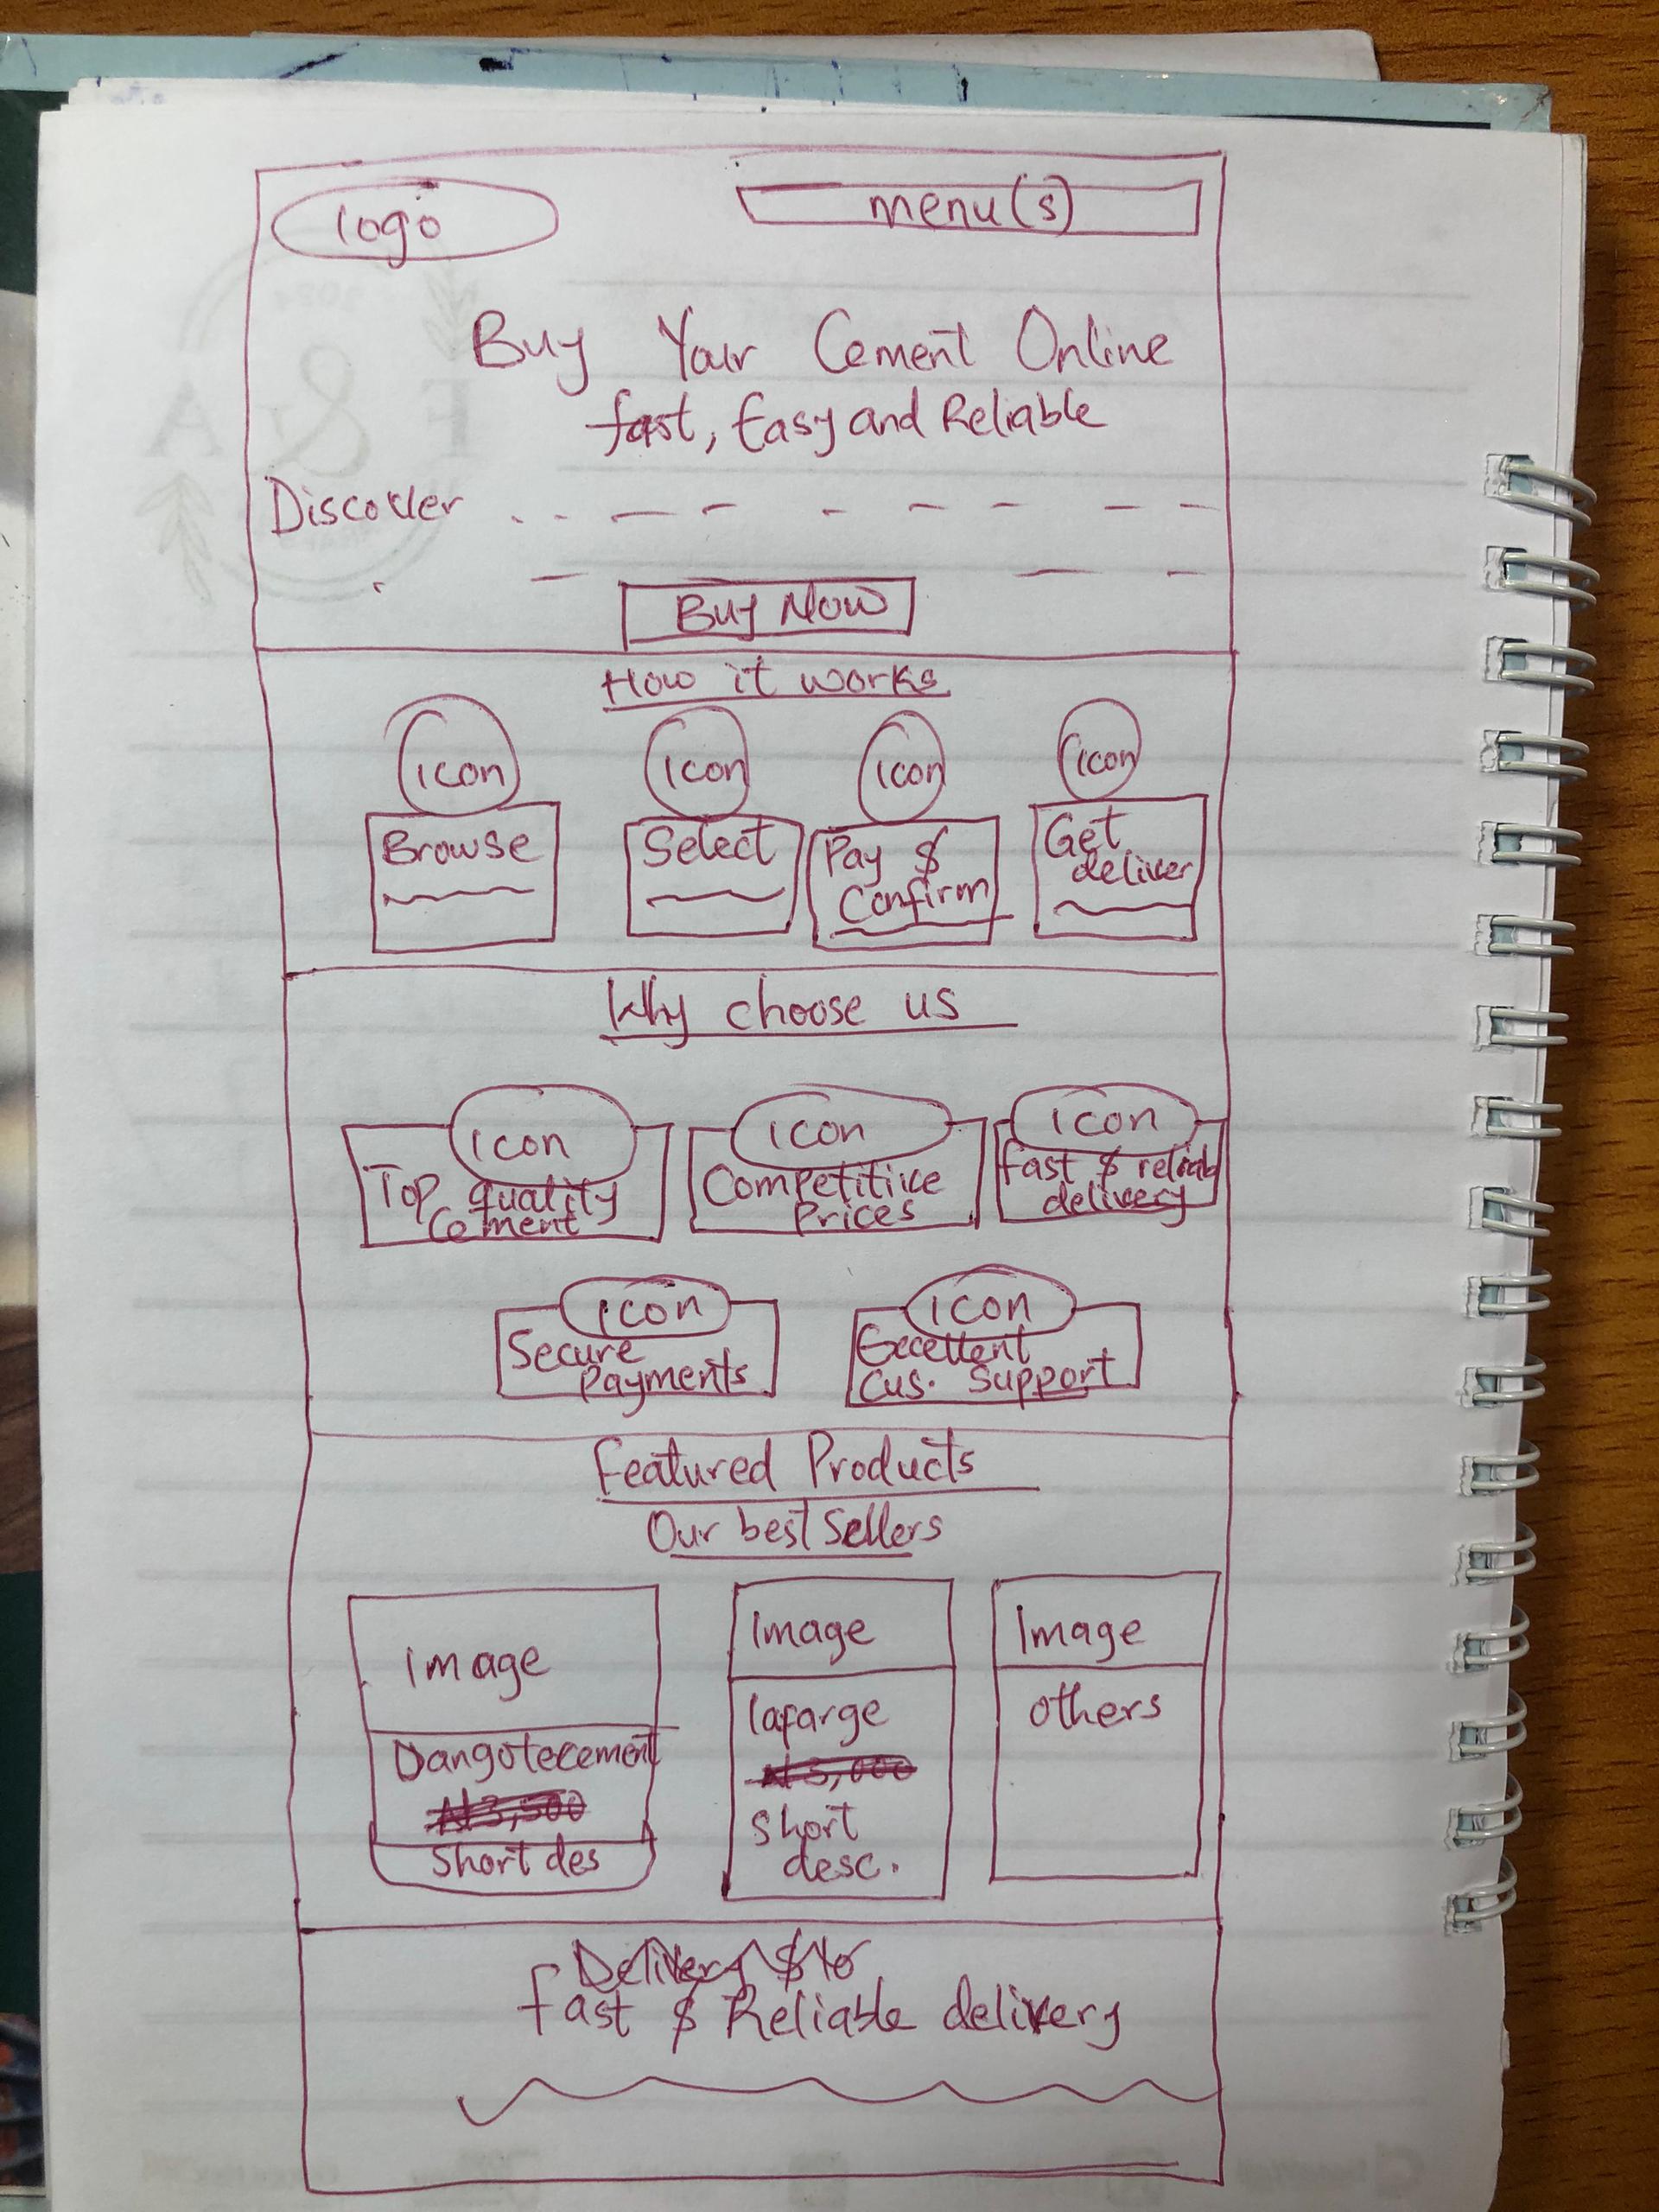 logo
menu(s)
Buy Your Cement Online
fast, Easy and Reliable
Discover
Buy Now
How it works
icon
icon
icon
icon
Browse
Select
Pay $
Confirm
Get
deliver
Why choose us
icon
icon
icon
Top quality
Cement
Competitive
Prices
fast $ reliabl
delivery
icon
icon
Secure
Payments
Excellent
Cus. Support
Featured Products
Our best Sellers
Image
Image
Image
Dangotecement
₦3,500
Short des
lafarge
₦5,000
Short
desc.
others
Delivery $ to
fast $ Reliable delivery